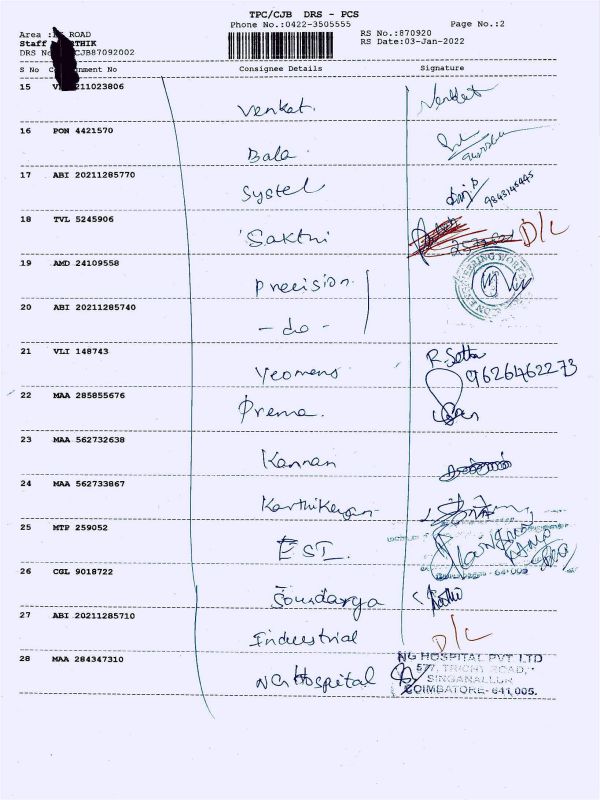 TPC/CJB DRS - PCS
Phone No.:0422-3505555 Page No.:2
Area : ROAD RS No.:870920
Staff RTHIK RS Date:03-Jan-2022
DRS No CJB87092002
S No C nment No Consignee Details Signature
15 211023806 Venket. Venket
16 PON 4421570 Bala
17 ABI 20211285770 Systel 9843145445
18 TVL 5245906 Sakthi D/L
19 AMD 24109558 Precision
20 ABI 20211285740 - do -
21 VLI 148743 Yeomens 9626462273
22 MAA 285855676 Prema.
23 MAA 562732638 Kannan
24 MAA 562733867 Karthikeyan
25 MTP 259052 ESI.
26 CGL 9018722 Soundarya
27 ABI 20211285710 Industrial D/L
28 MAA 284347310 NG Hospital
NG HOSPITAL PVT LTD
577, TRICHY ROAD,
SINGANALLUR
COIMBATORE- 641 005.